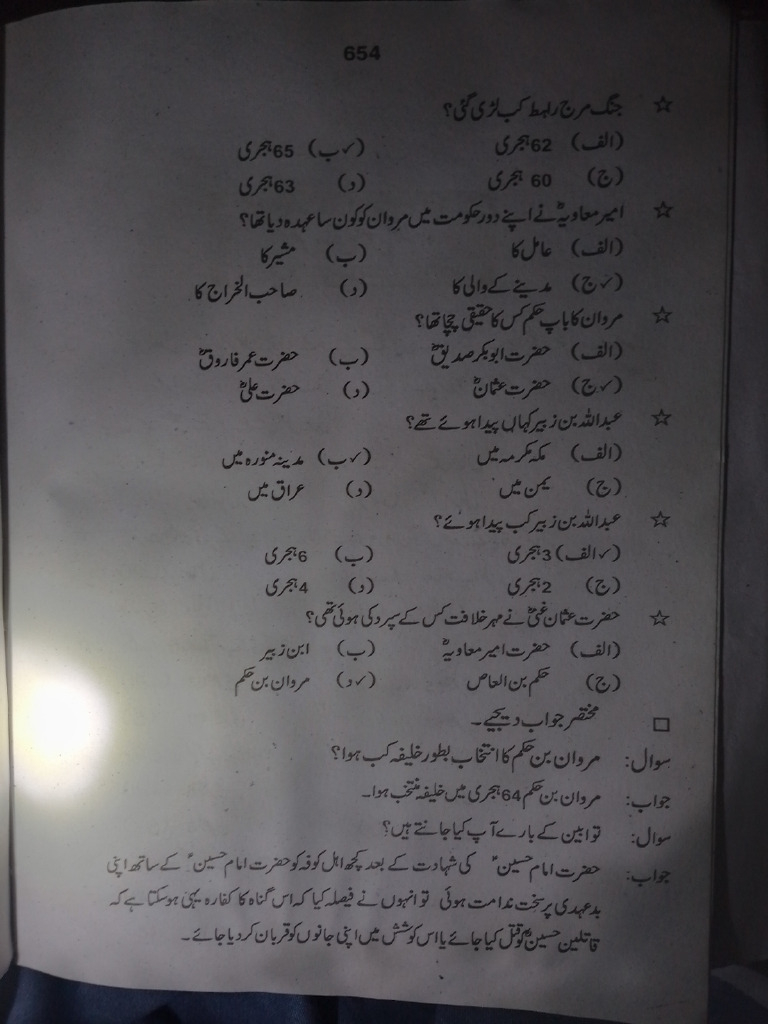 654
☆ جنگ مرج راہط کب لڑی گئی؟
(الف) 62 ہجری (✓ب) 65 ہجری
(ج) 60 ہجری (د) 63 ہجری
☆ امیر معاویہؓ نے اپنے دور حکومت میں مروان کو کون سا عہدہ دیا تھا؟
(الف) عامل کا (ب) مشیر کا
(✓ج) مدینے کے والی کا (د) صاحب الخراج کا
☆ مروان کا باپ حکم کس کا حقیقی چچا تھا؟
(الف) حضرت ابوبکر صدیقؓ (ب) حضرت عمر فاروقؓ
(✓ج) حضرت عثمانؓ (د) حضرت علیؓ
☆ عبداللہ بن زبیر کہاں پیدا ہوئے تھے؟
(الف) مکہ مکرمہ میں (✓ب) مدینہ منورہ میں
(ج) یمن میں (د) عراق میں
☆ عبداللہ بن زبیر کب پیدا ہوئے؟
(✓الف) 3 ہجری (ب) 6 ہجری
(ج) 2 ہجری (د) 4 ہجری
☆ حضرت عثمان غنیؓ نے مہر خلافت کس کے سپرد کی ہوئی تھی؟
(الف) حضرت امیر معاویہؓ (ب) ابن زبیر
(ج) حکم بن العاص (✓د) مروان بن حکم
□ مختصر جواب دیجیے۔
سوال: مروان بن حکم کا انتخاب بطور خلیفہ کب ہوا؟
جواب: مروان بن حکم 64 ہجری میں خلیفہ منتخب ہوا۔
سوال: توابین کے بارے آپ کیا جانتے ہیں؟
جواب: حضرت امام حسینؑ کی شہادت کے بعد کچھ اہل کوفہ کو حضرت امام حسینؑ کے ساتھ اپنی
بدعہدی پر سخت ندامت ہوئی تو انہوں نے فیصلہ کیا کہ اس گناہ کا کفارہ یہی ہو سکتا ہے کہ
قاتلین حسینؓ کو قتل کیا جائے یا اس کوشش میں اپنی جانوں کو قربان کر دیا جائے۔